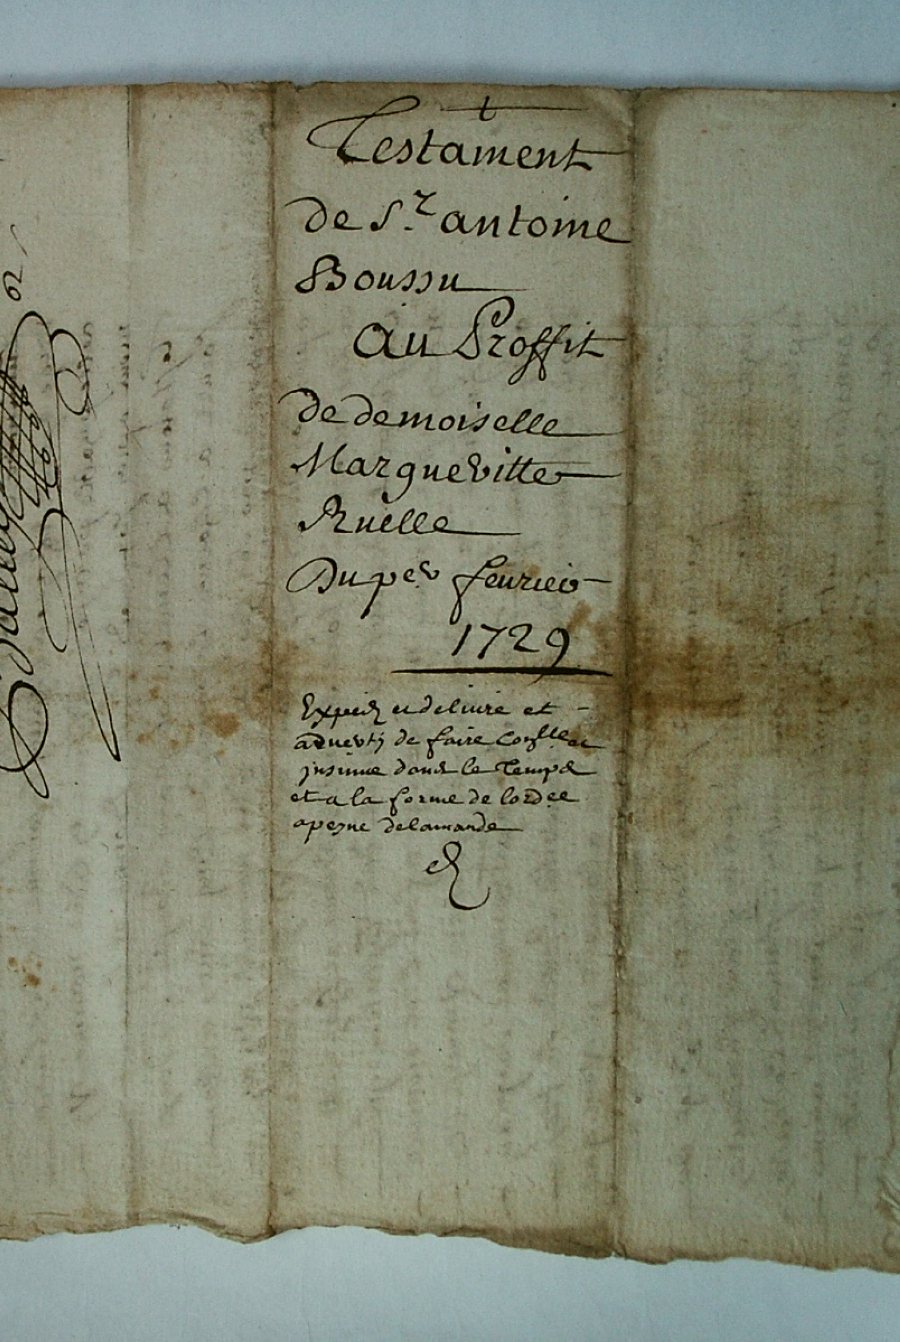 Testament
de S.r antoine
Boussu
Au Proffit
de demoiselle
Marguevitte
Ruelle
Du per feurier
1729
Expedié et deliuré et
aduerti de faire
jnsinue dans le Temps
et a la forme de lordce
apeyne delamande